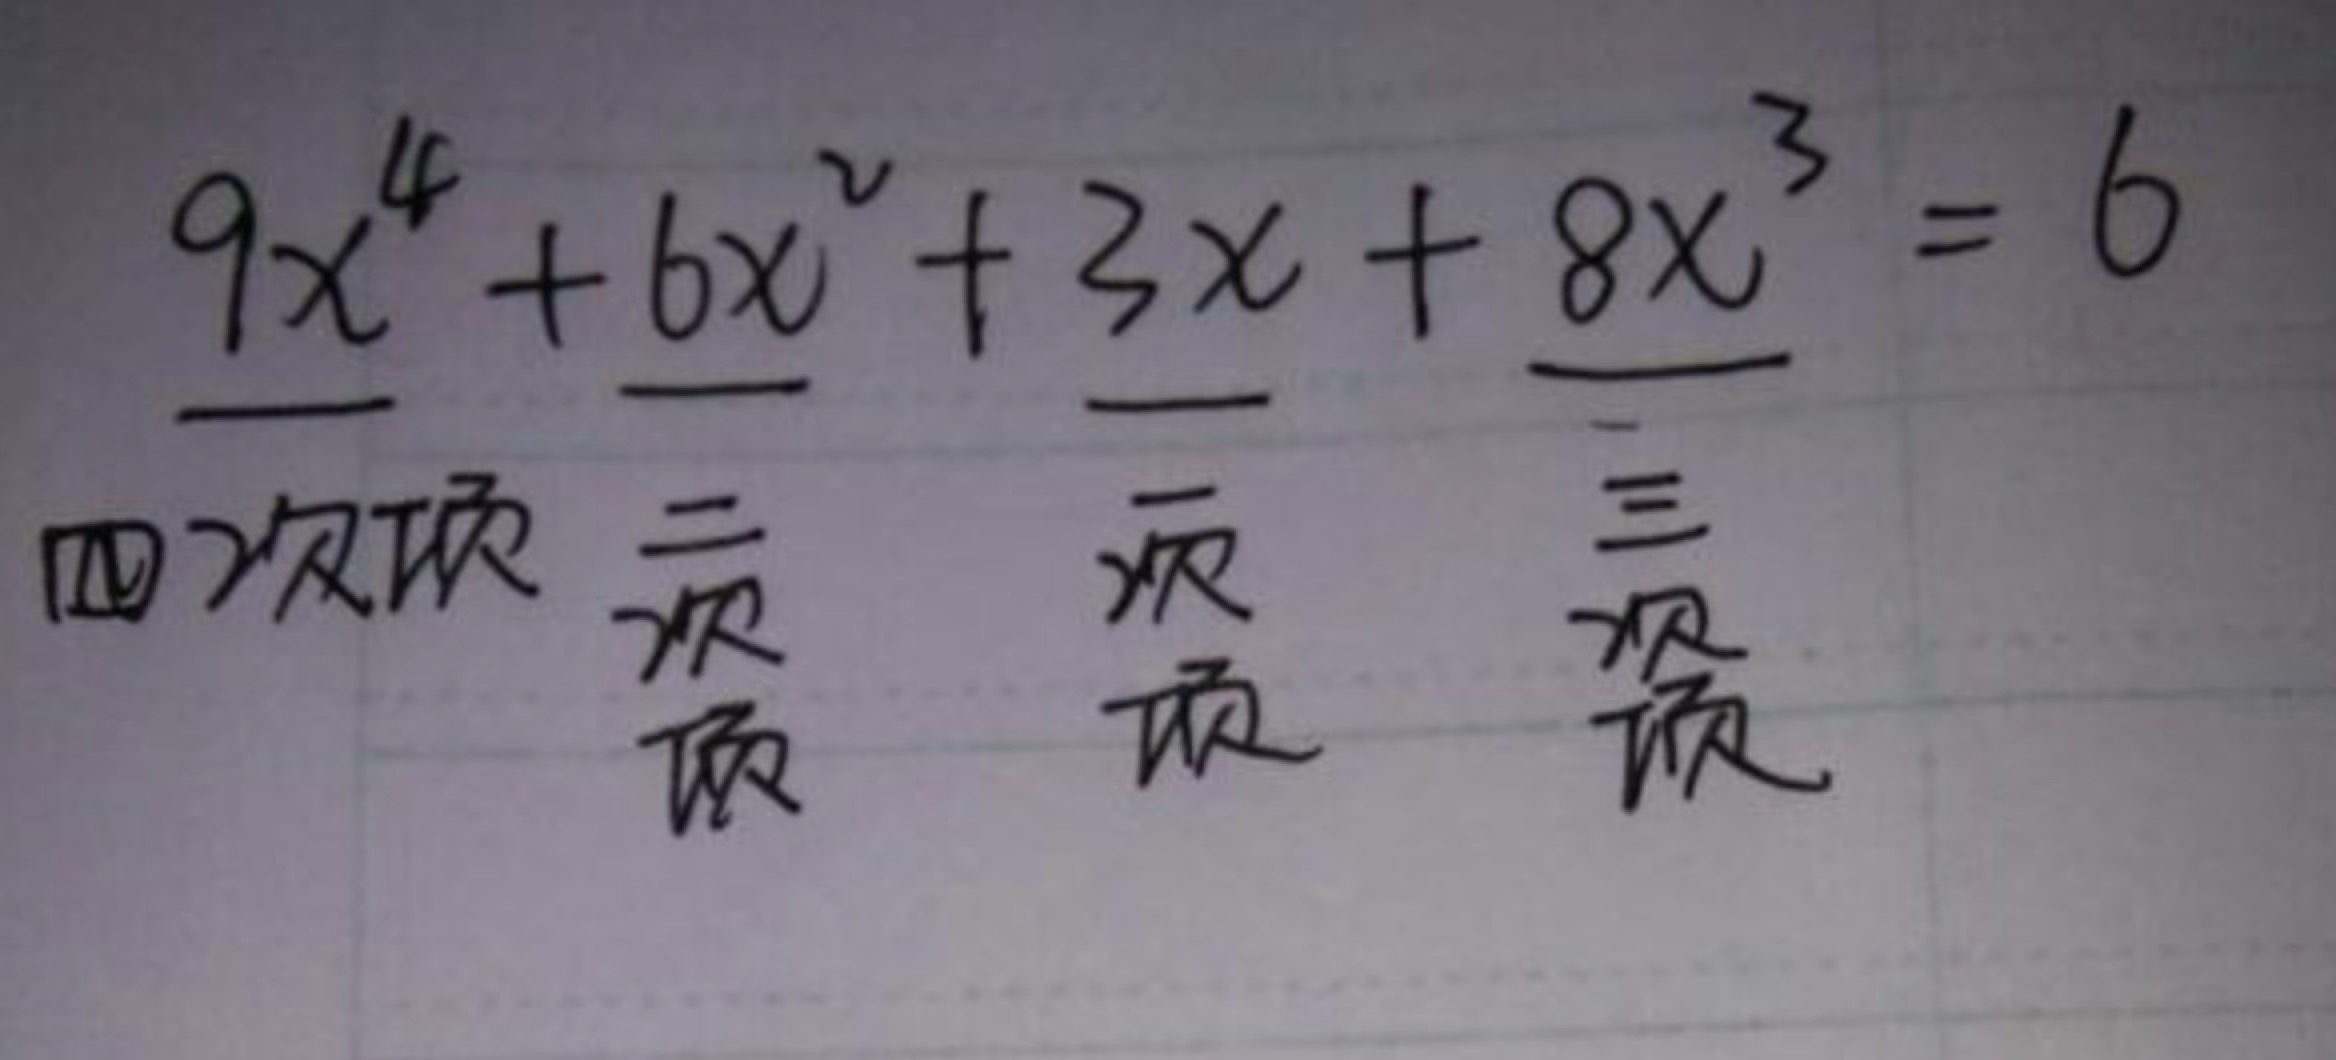 9x⁴ + 6x² + 3x + 8x³ = 6
四次项
二次项
一次项
三次项